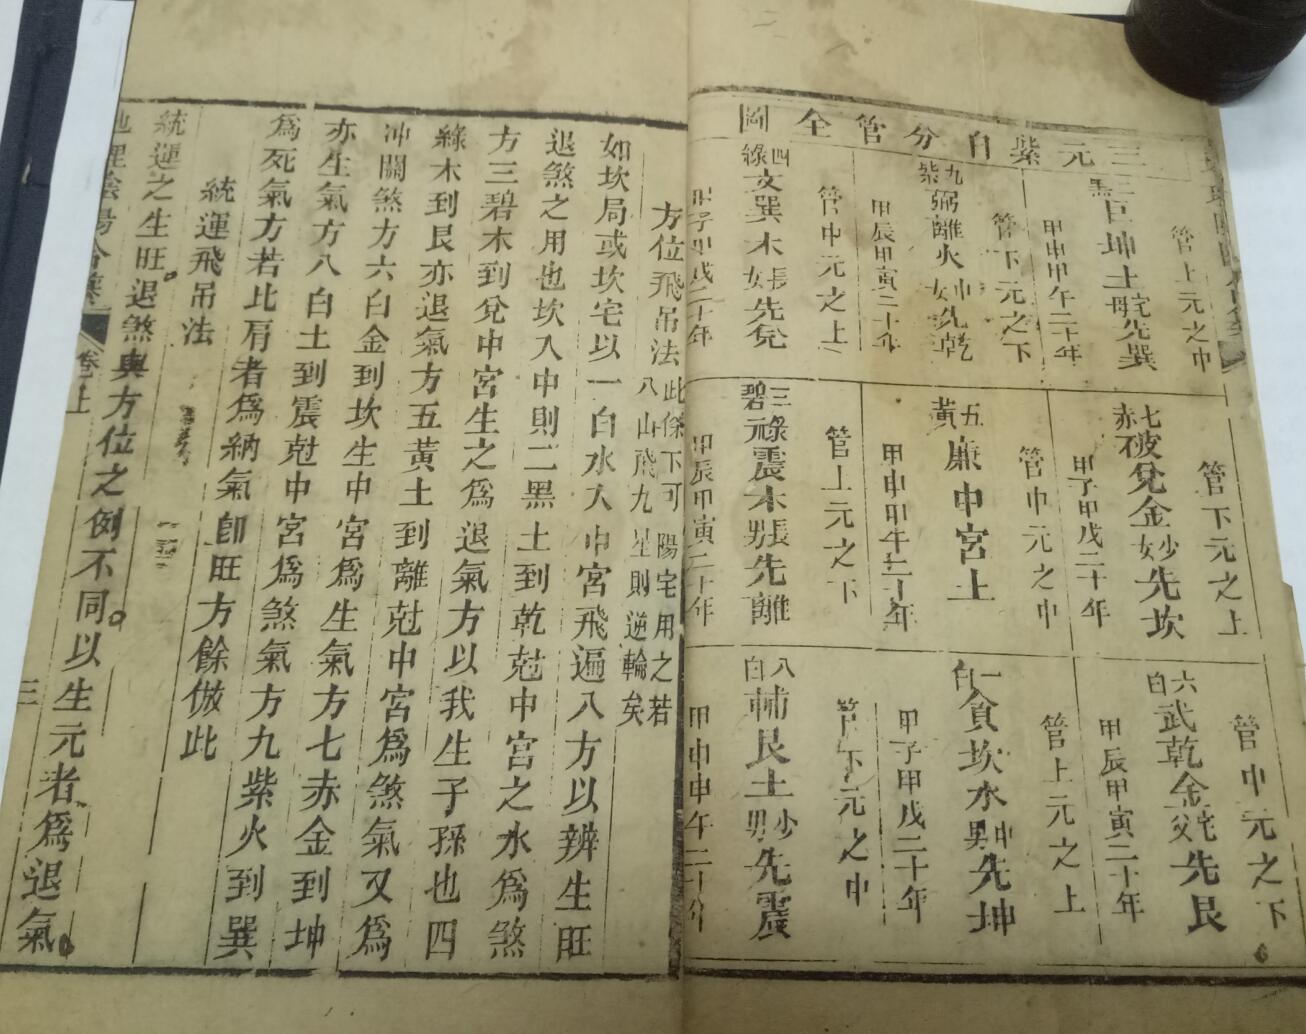 三元紫白分管全圖
管上元之中
二黑巨坤土老母先巽
甲申甲午二十年
管下元之下
九紫弼離火中女先乾
甲辰甲寅二十年
管中元之上
四綠文巽木長女先兌
甲子甲戌二十年
管下元之上
七赤破兌金少女先坎
甲子甲戌二十年
管中元之中
五黃廉中宮土
甲申甲午二十年
管上元之下
三碧祿震木長男先離
甲辰甲寅二十年
管中元之下
六白武乾金老父先艮
甲辰甲寅二十年
管上元之上
一白貪坎水中男先坤
甲子甲戌二十年
管下元之中
八白輔艮土少男先震
甲申甲午二十年
方位飛吊法此條下可陽宅用之若八山飛九星則逆輪矣
如坎局或坎宅以一白水入中宮飛遍八方以辨生旺
退煞之用也坎入中則二黑土到乾尅中宮之水爲煞
方三碧木到兌中宮生之爲退氣方以我生子孫也四
綠木到艮亦退氣方五黃土到離尅中宮爲煞氣又爲
冲關煞方六白金到坎生中宮爲生氣方七赤金到坤
亦生氣方八白土到震尅中宮爲煞氣方九紫火到巽
爲死氣方若比肩者爲納氣卽旺方餘倣此
統運飛吊法
統運之生旺退煞與方位之例不同以生元者爲退氣
地理陰陽合纂 卷上 三